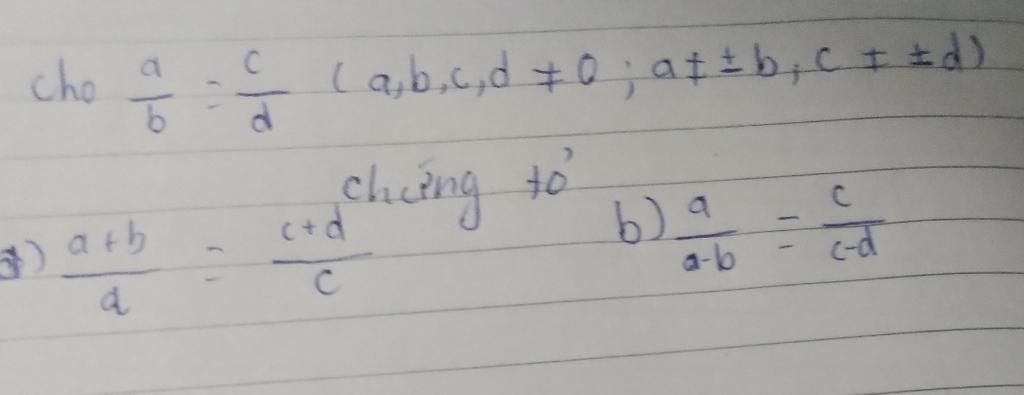 cho a/b = c/d (a,b,c,d ≠ 0 ; a ≠ ±b, c ≠ ±d)
chứng tỏ
a) a+b/a = c+d/c b) a/a-b = c/c-d